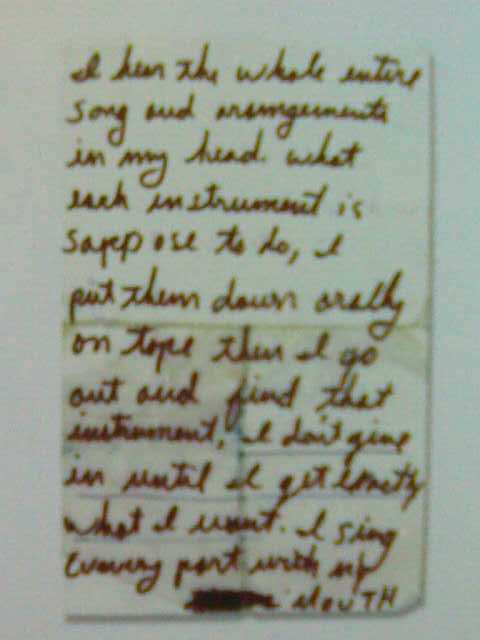 I hear the whole entire
song and arrangements
in my head. what
each instrument is
suppose to do, I
put them down orally
on tape then I go
out and find that
instrument, I don't give
in until I get exactly
what I want. I sing
every part with my
MOUTH